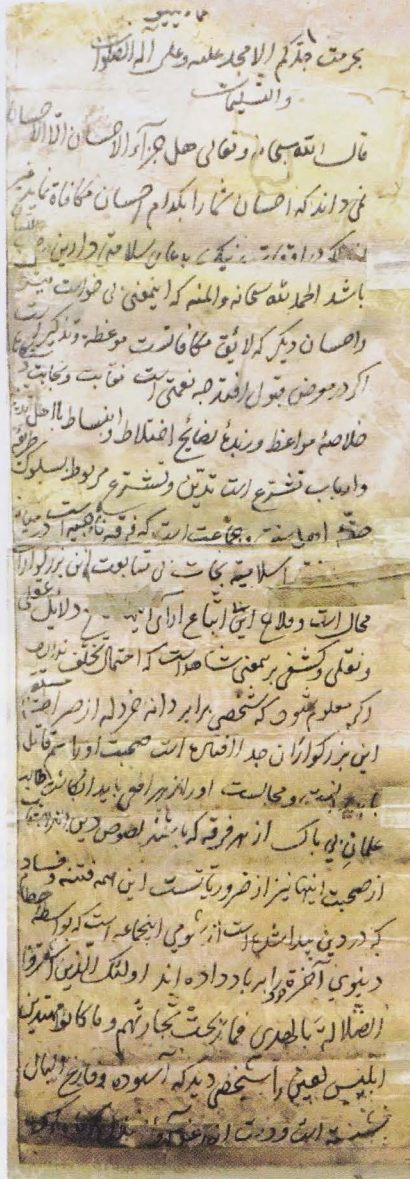 بحرمت جدکم الامجد علیه وعلی آله الصلوات
والتسلیمات
قال الله سبحانه وتعالی هل جزاء الاحسان الا الاحسان
نمی داند که احسان شما را بکدام احسان مکافاة نماید
باشد الحمد لله سبحانه والمنه که اینمعنی بی خواست میسر
واحسان دیگر که لائق مکافاتست موعظه وتذکیر است
اگر در معرض قبول افتد چه نعمتی است نقابت ونجابت
خلاصهٔ مواعظ وزبدهٔ نصایح اختلاط وانبساط با اهل
وارباب تشرع است تدین وتشرع مربوط بسلوک طریقهٔ
حقه اهل سنت وجماعت است که فرقه ناجیه اند
اسلامیه نجات بی متابعت این بزرگواران
محال است وفلاح بی اتباع آرای دلایل عقلی
ونقلی وکشفی برینمعنی شاهد است که احتمال تخلف ندارد
اگر معلوم شود که شخصی برابر دانه خردله از صراط
این بزرگواران جدا افتاده است صحبت او را سم قاتل
ومجالست او را زهر افعی باید انگاشت
علمان بی باک از هر فرقه که باشند لصوص دین اند
از صحبت اینها نیز از ضروریاتست این همه فتنه وفساد
که در دین پیدا شده است از شومی اینجماعه است که بواسطه حطام
دنیوی آخرة خود را برباد داده اند اولئک الذین اشتروا
الضلالة بالهدی فما ربحت تجارتهم وما کانوا مهتدین
ابلیس لعین را شخصی دید که آسوده وفارغ البال
نشسته است ودست از اغوا